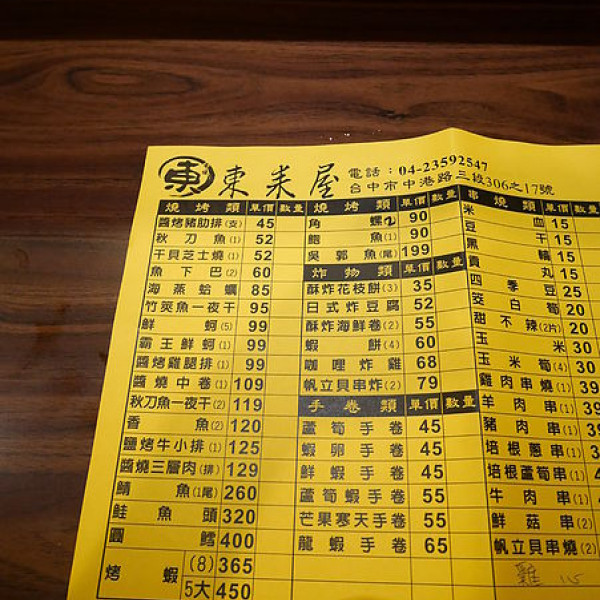 東 東來屋
電話：04-23592547
台中市中港路三段306之17號
燒烤類 單價 數量
醬烤豬肋排(支) 45
秋刀魚(1) 52
干貝芝士燒(1) 52
魚下巴(2) 60
海燕蛤蠣 85
竹筴魚一夜干 95
鮮蚵(5) 99
霸王鮮蚵(1) 99
醬烤雞腿排(1) 99
醬燒中卷(1) 109
秋刀魚一夜干(2) 119
香魚(2) 120
鹽烤牛小排(1) 125
醬燒三層肉(排) 129
鯖魚(1尾) 260
鮭魚頭 320
圓鱈 400
烤蝦 (8) 365
5大 450
燒烤類 單價 數量
角螺 90
鮑魚(1) 90
吳郭魚(尾) 199
炸物類 單價 數量
酥炸花枝餅(3) 35
日式炸豆腐 52
酥炸海鮮卷(2) 55
蝦餅(4) 60
咖哩炸雞 68
帆立貝串炸(2) 79
手卷類 單價 數量
蘆筍手卷 45
蝦卵手卷 45
鮮蝦手卷 45
蘆筍蝦手卷 55
芒果寒天手卷 55
龍蝦手卷 65
串燒類 單價 數
米血 15
豆干 15
黑輪 15
貢丸 15
四季豆 25
筊白筍 20
甜不辣(2片) 20
玉米 30
玉米筍(4) 30
雞肉串燒(1)
羊肉串(1)
豬肉串(1)
培根蔥串(1)
培根蘆筍串(1)
牛肉串(1)
鮮菇串(2)
帆立貝串燒(2)
雞